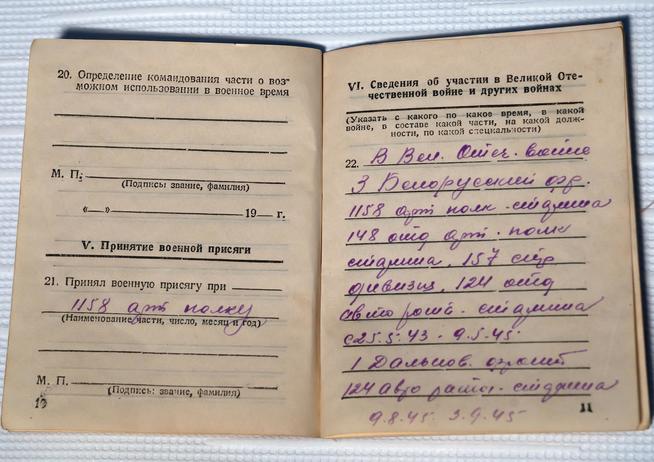 20. Определение командования части о воз-
можном использовании в военное время
М. П.
(Подпись: звание, фамилия)
«—» 19— г.
V. Принятие военной присяги
21. Принял военную присягу при
1158 арт полку
(Наименование части, число, месяц и год)
М. П.
(Подпись: звание, фамилия)
10
VI. Сведения об участии в Великой Оте-
чественной войне и других войнах
(Указать с какого по какое время, в какой
войне, в составе какой части, на какой долж-
ности, по какой специальности)
22. В Вел. Отеч. войне
3 Белорусский фр.
1158 арт полк
148 отд арт. полк
157 стр
дивизия, 124 отд
авто рота
с 25.5.43 - 9.5.45
1 Дальнев. фронт
124 авто рота
9.8.45 3.9.45
11